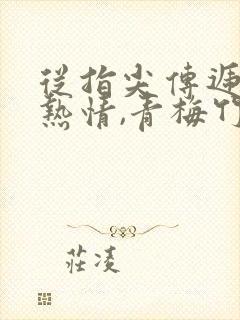 從指尖傳遞
熱情,青梅竹
莊凌